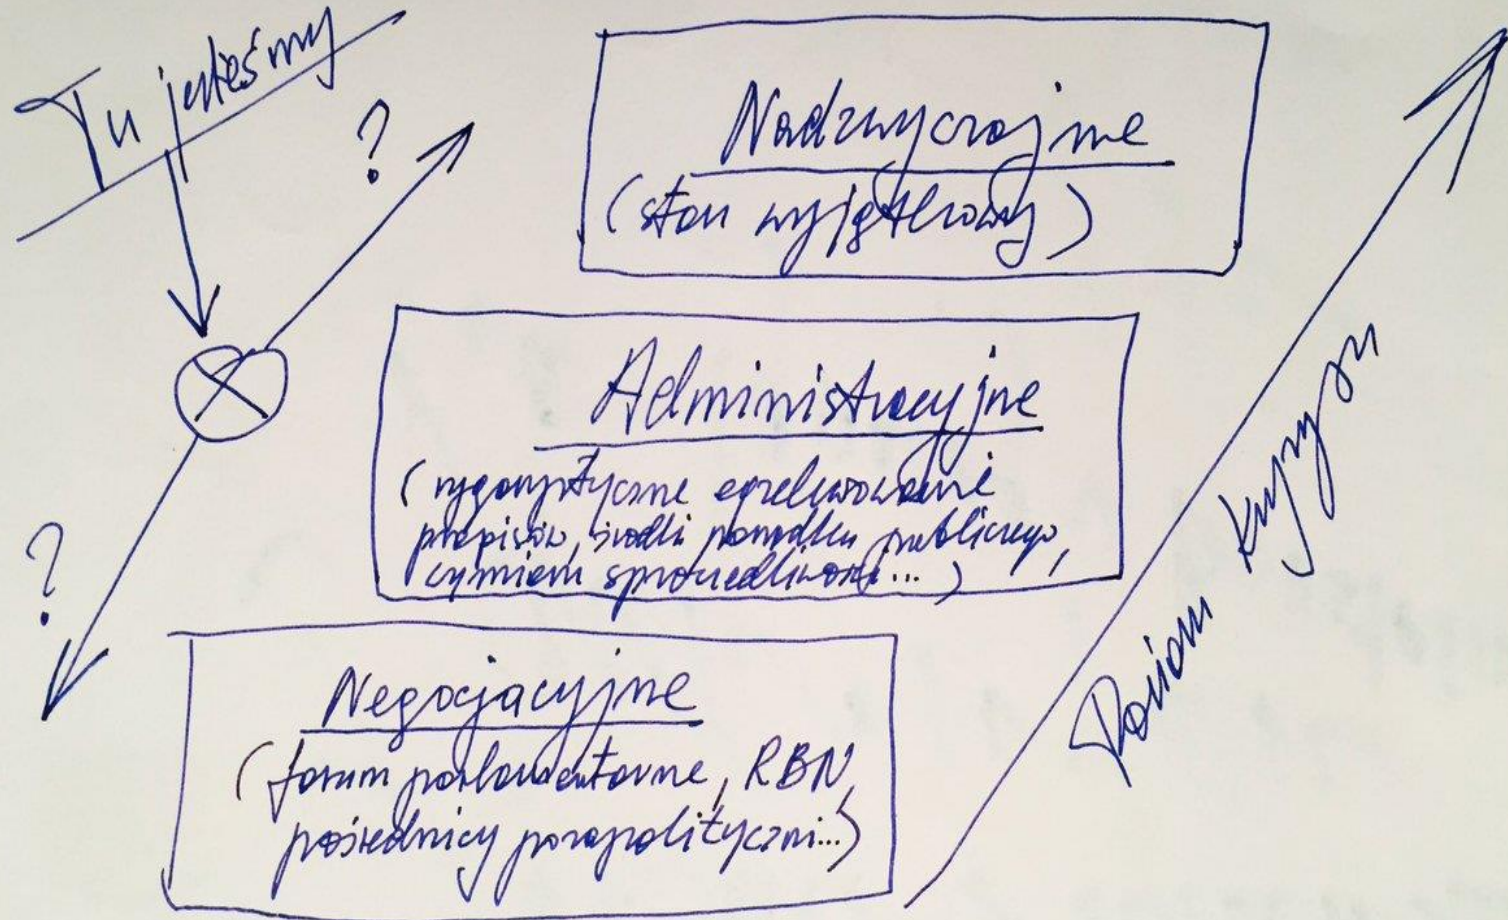 Tu jesteśmy
?
Nadzwyczajne
(stan wyjątkowy)
Administracyjne
(rygorystyczne egzekwowanie
przepisów, środki porządku publicznego,
wymiar sprawiedliwości...)
?
Negocjacyjne
(forum parlamentarne, RBN,
pośrednicy parapolityczni...)
Poziom kryzysu